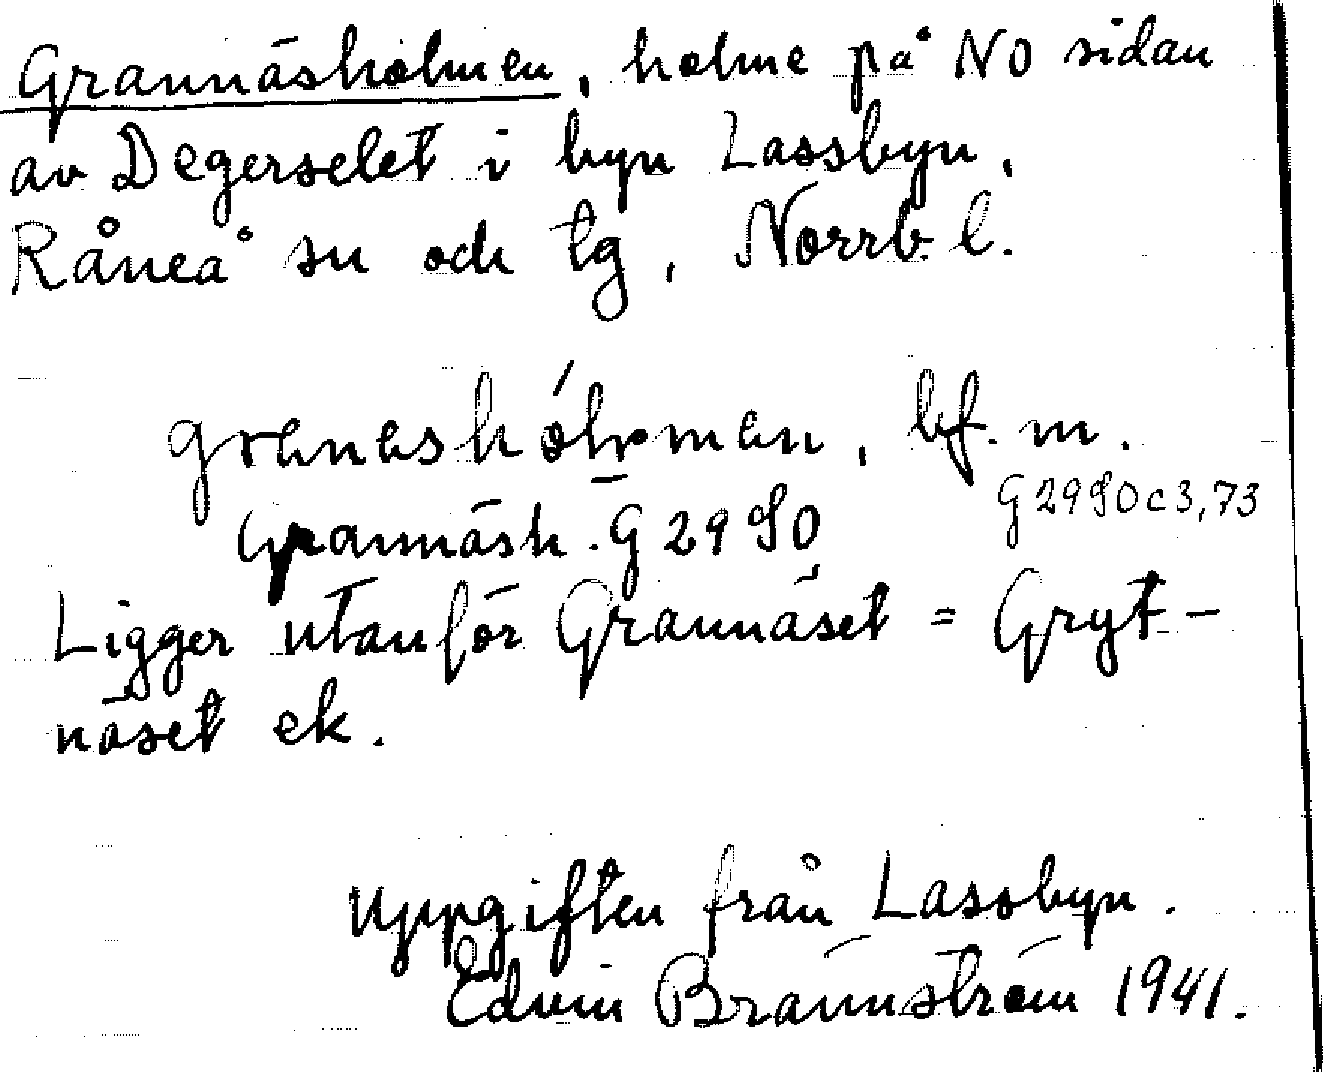 Grannäsholmen, holme på NO sidan
av Degerselet i byn Lassbyn,
Råneå sn och tg, Norrb. l.
bf. m.
G2990c3,73
Grannäsh. G 2990
Ligger utanför Grannäset = Gryt-
näset ek.
Uppgiften från Lassbyn.
Edvin Brännström 1941.